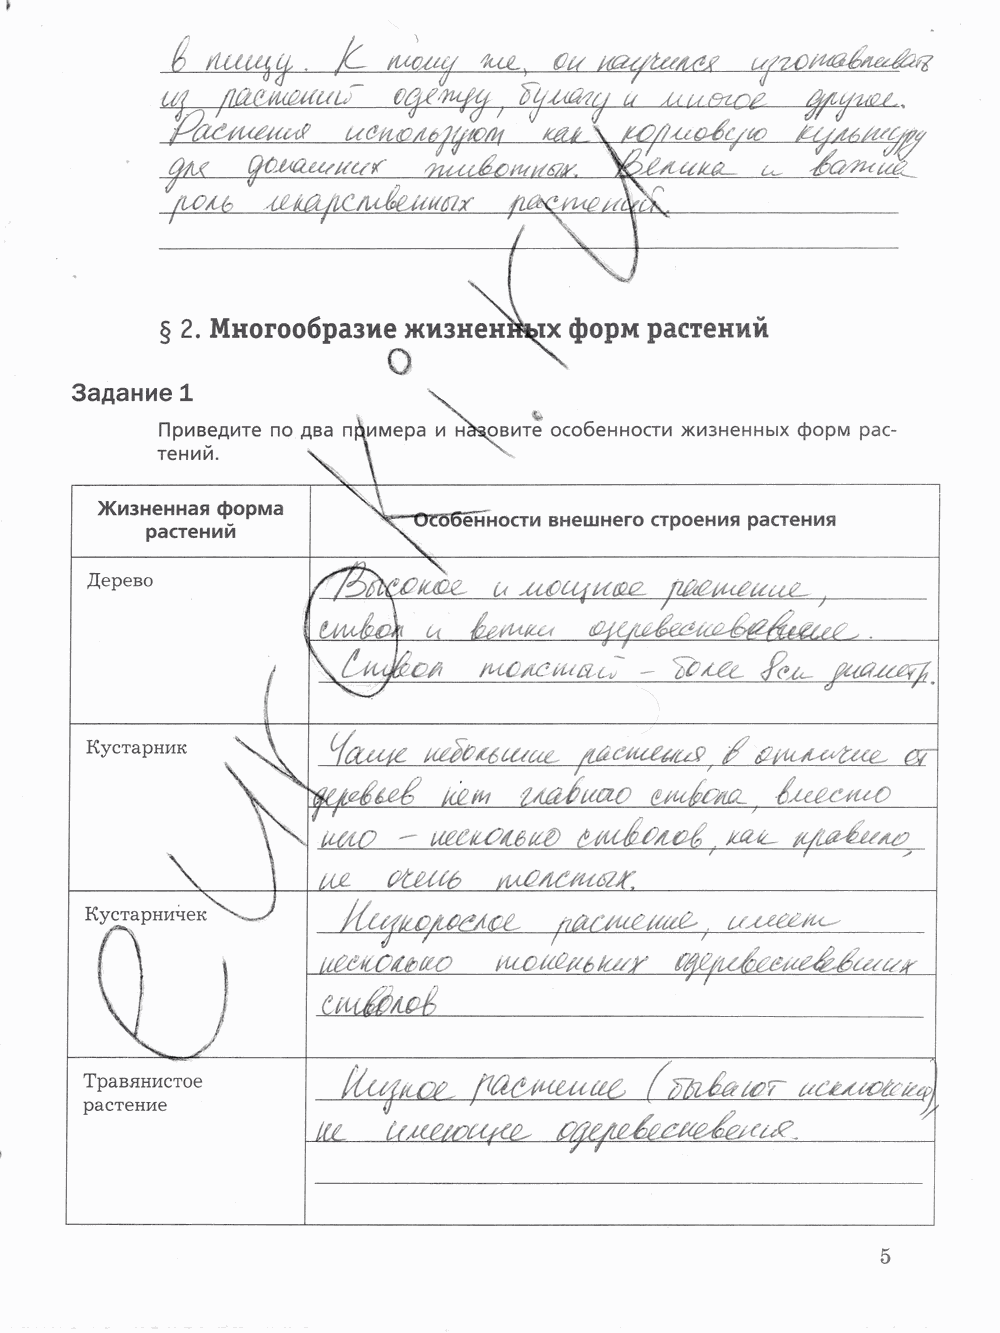 в пищу. К тому же, он научился изготавливать
из растений одежду, бумагу и многое другое.
Растения используют как кормовую культуру
для домашних животных. Велика и важна
роль лекарственных растений.
§ 2. Многообразие жизненных форм растений
Задание 1
Приведите по два примера и назовите особенности жизненных форм рас-
тений.
Жизненная форма
растений
Особенности внешнего строения растения
Дерево
Высокое и мощное растение,
ствол и ветки одеревесневавшие.
Ствол толстый – более 8см диаметр.
Кустарник
Чаще небольшие растения, в отличие от
деревьев нет главного ствола, вместо
него – несколько стволов, как правило,
не очень толстых.
Кустарничек
Низкорослое растение, имеет
несколько тоненьких одеревесневевших
стволов
Травянистое
растение
Низкое растение (бывают исключения),
не имеющее одеревесневения.
5